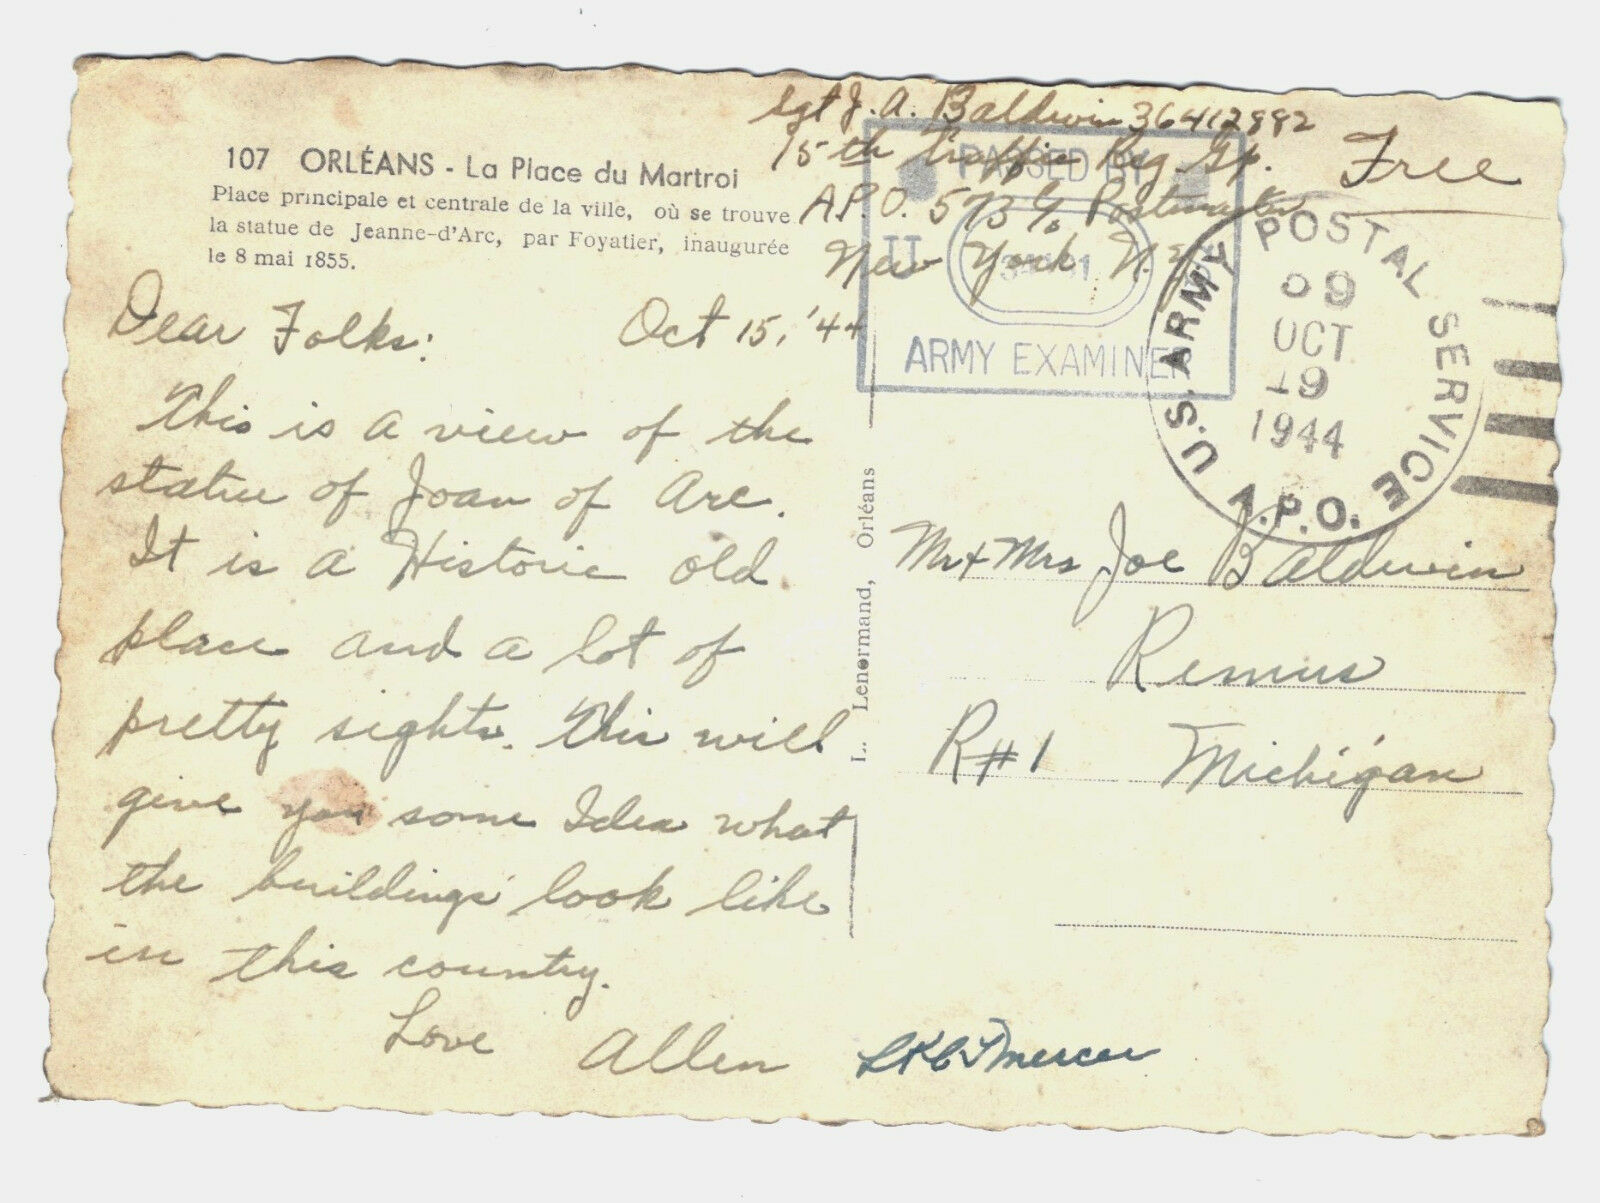 107 ORLÉANS - La Place du Martroi
Place principale et centrale de la ville, où se trouve
la statue de Jeanne-d'Arc, par Foyatier, inaugurée
le 8 mai 1855.
Sgt J. A. Baldwin 36412882
15th Traffic Reg. Gp.
A.P.O. 573 c/o Postmaster
New York N.Y.
Free
PASSED BY
U
ARMY EXAMINER
U.S. ARMY POSTAL SERVICE
A.P.O.
OCT
19
1944
Dear Folks: Oct 15, '44
This is a view of the
statue of Joan of Arc.
It is a Historic old
place and a lot of
pretty sights. This will
give you some Idea what
the buildings look like
in this country.
Love Allen
L. Lenormand, Orléans
Mr + Mrs Joe Baldwin
Remus
R#1 Michigan
Mercer